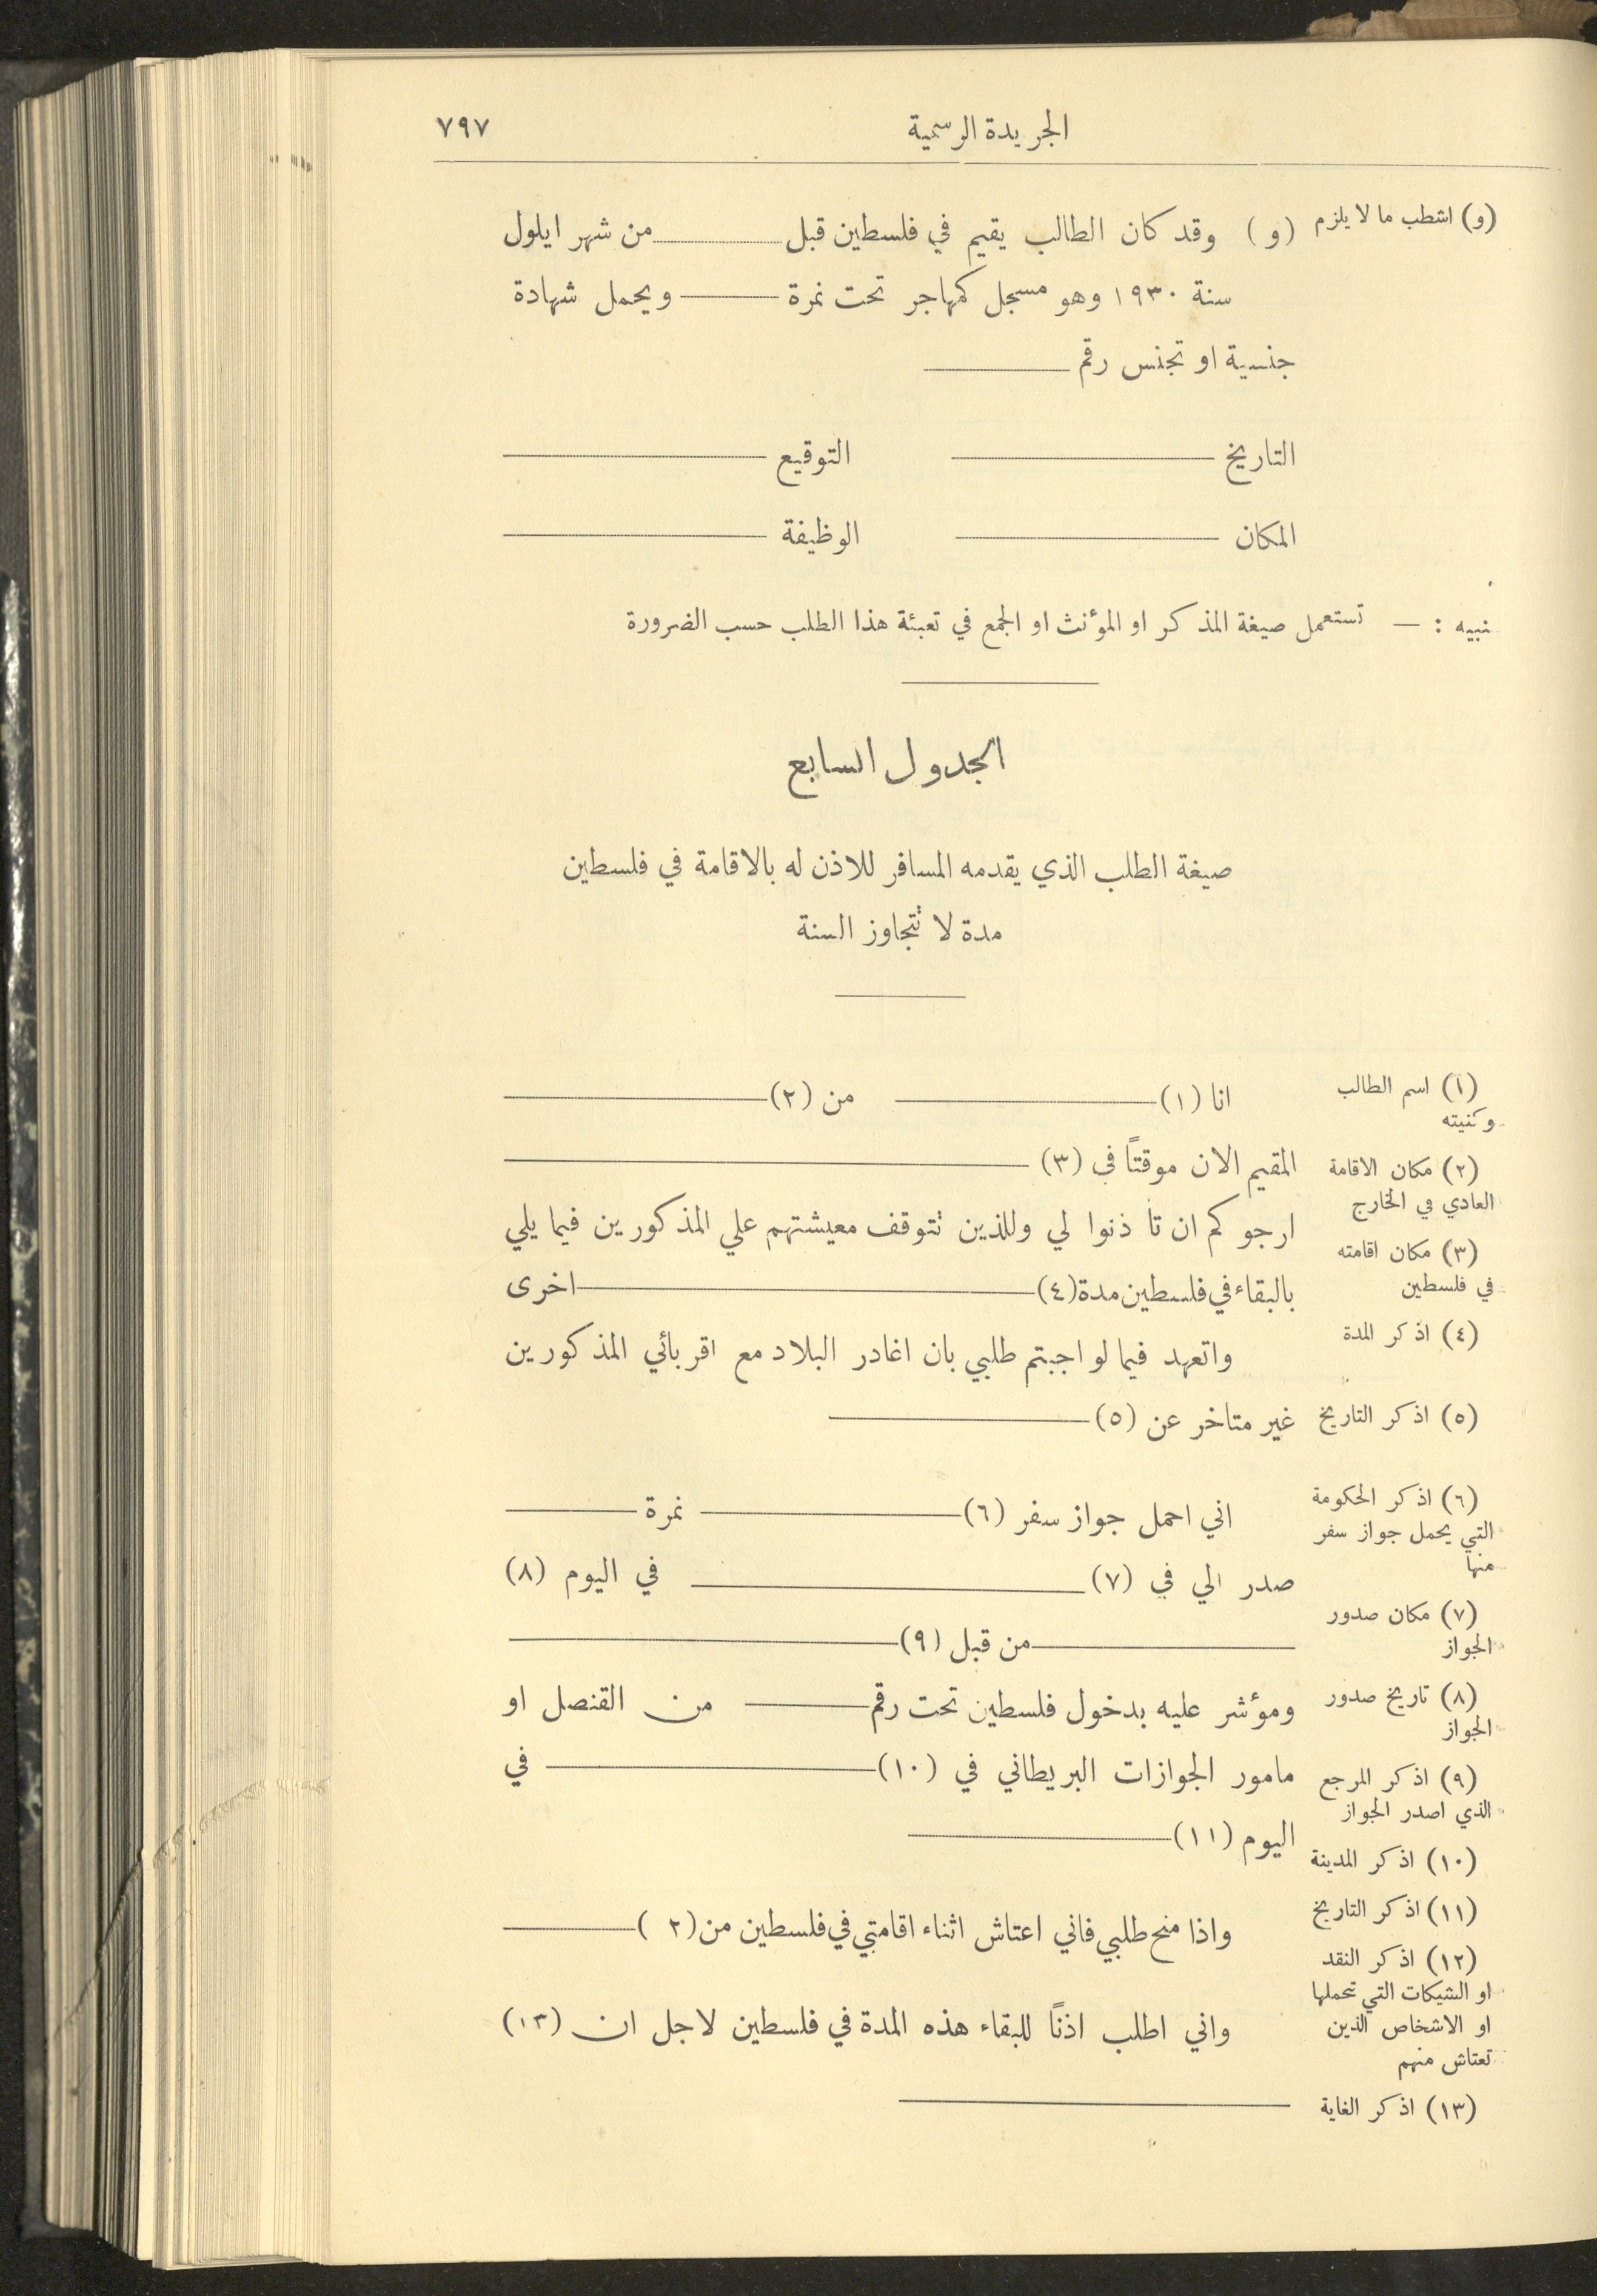 الجريدة الرسمية ٧٩٧
(و) اشطب ما لا يلزم
(و) وقد كان الطالب يقيم في فلسطين قبل ــــــ من شهر ايلول
سنة ١٩٣٠ وهو مسجل كمهاجر تحت نمرة ــــــ ويحمل شهادة
جنسية او تجنس رقم ــــــ
التاريخ ــــــ التوقيع ــــــ
المكان ــــــ الوظيفة ــــــ
نبيه : — تستعمل صيغة المذكر او المؤنث او الجمع في تعبئة هذا الطلب حسب الضرورة
الجدول السابع
صيغة الطلب الذي يقدمه المسافر للاذن له بالاقامة في فلسطين
مدة لا تتجاوز السنة
انا (١) ــــــ من (٢) ــــــ
المقيم الان موقتاً في (٣) ــــــ
ارجوكم ان تأذنوا لي وللذين تتوقف معيشتهم علي المذكورين فيما يلي
بالبقاء في فلسطين مدة (٤) ــــــ اخرى
واتعهد فيما لو اجبتم طلبي بان اغادر البلاد مع اقربائي المذكورين
غير متاخر عن (٥) ــــــ
اني احمل جواز سفر (٦) ــــــ نمرة ــــــ
صدر الي في (٧) ــــــ في اليوم (٨)
ــــــ من قبل (٩) ــــــ
ومؤشر عليه بدخول فلسطين تحت رقم ــــــ من القنصل او
مامور الجوازات البريطاني في (١٠) ــــــ في
اليوم (١١) ــــــ
واذا منح طلبي فاني اعتاش اثناء اقامتي في فلسطين من (٢ ) ــــــ
واني اطلب اذناً للبقاء هذه المدة في فلسطين لاجل ان (١٣)
ــــــ
(١) اسم الطالب
وكنيته
(٢) مكان الاقامة
العادي في الخارج
(٣) مكان اقامته
في فلسطين
(٤) اذكر المدة
(٥) اذكر التاريخ
(٦) اذكر الحكومة
التي يحمل جواز سفر
منها
(٧) مكان صدور
الجواز
(٨) تاريخ صدور
الجواز
(٩) اذكر المرجع
الذي اصدر الجواز
(١٠) اذكر المدينة
(١١) اذكر التاريخ
(١٢) اذكر النقد
او الشيكات التي تحملها
او الاشخاص الذين
تعتاش منهم
(١٣) اذكر الغاية